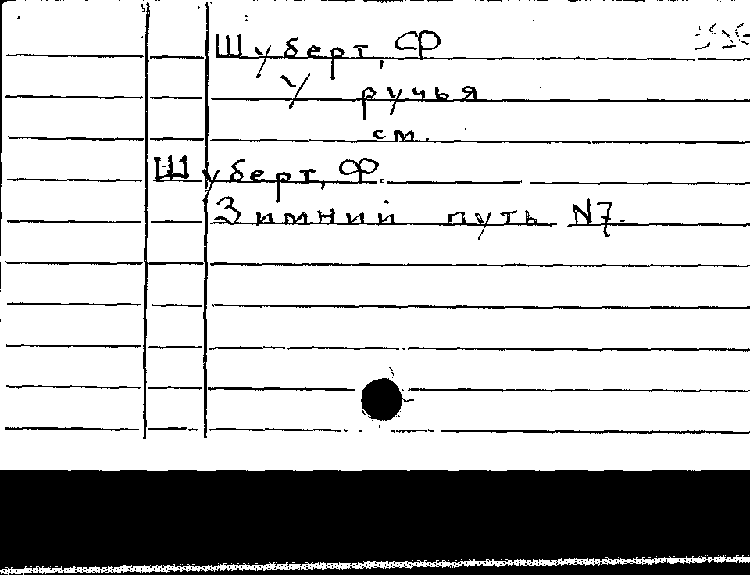 Шуберт, Ф
У ручья
см.
Шуберт, Ф.
Зимний путь N7.